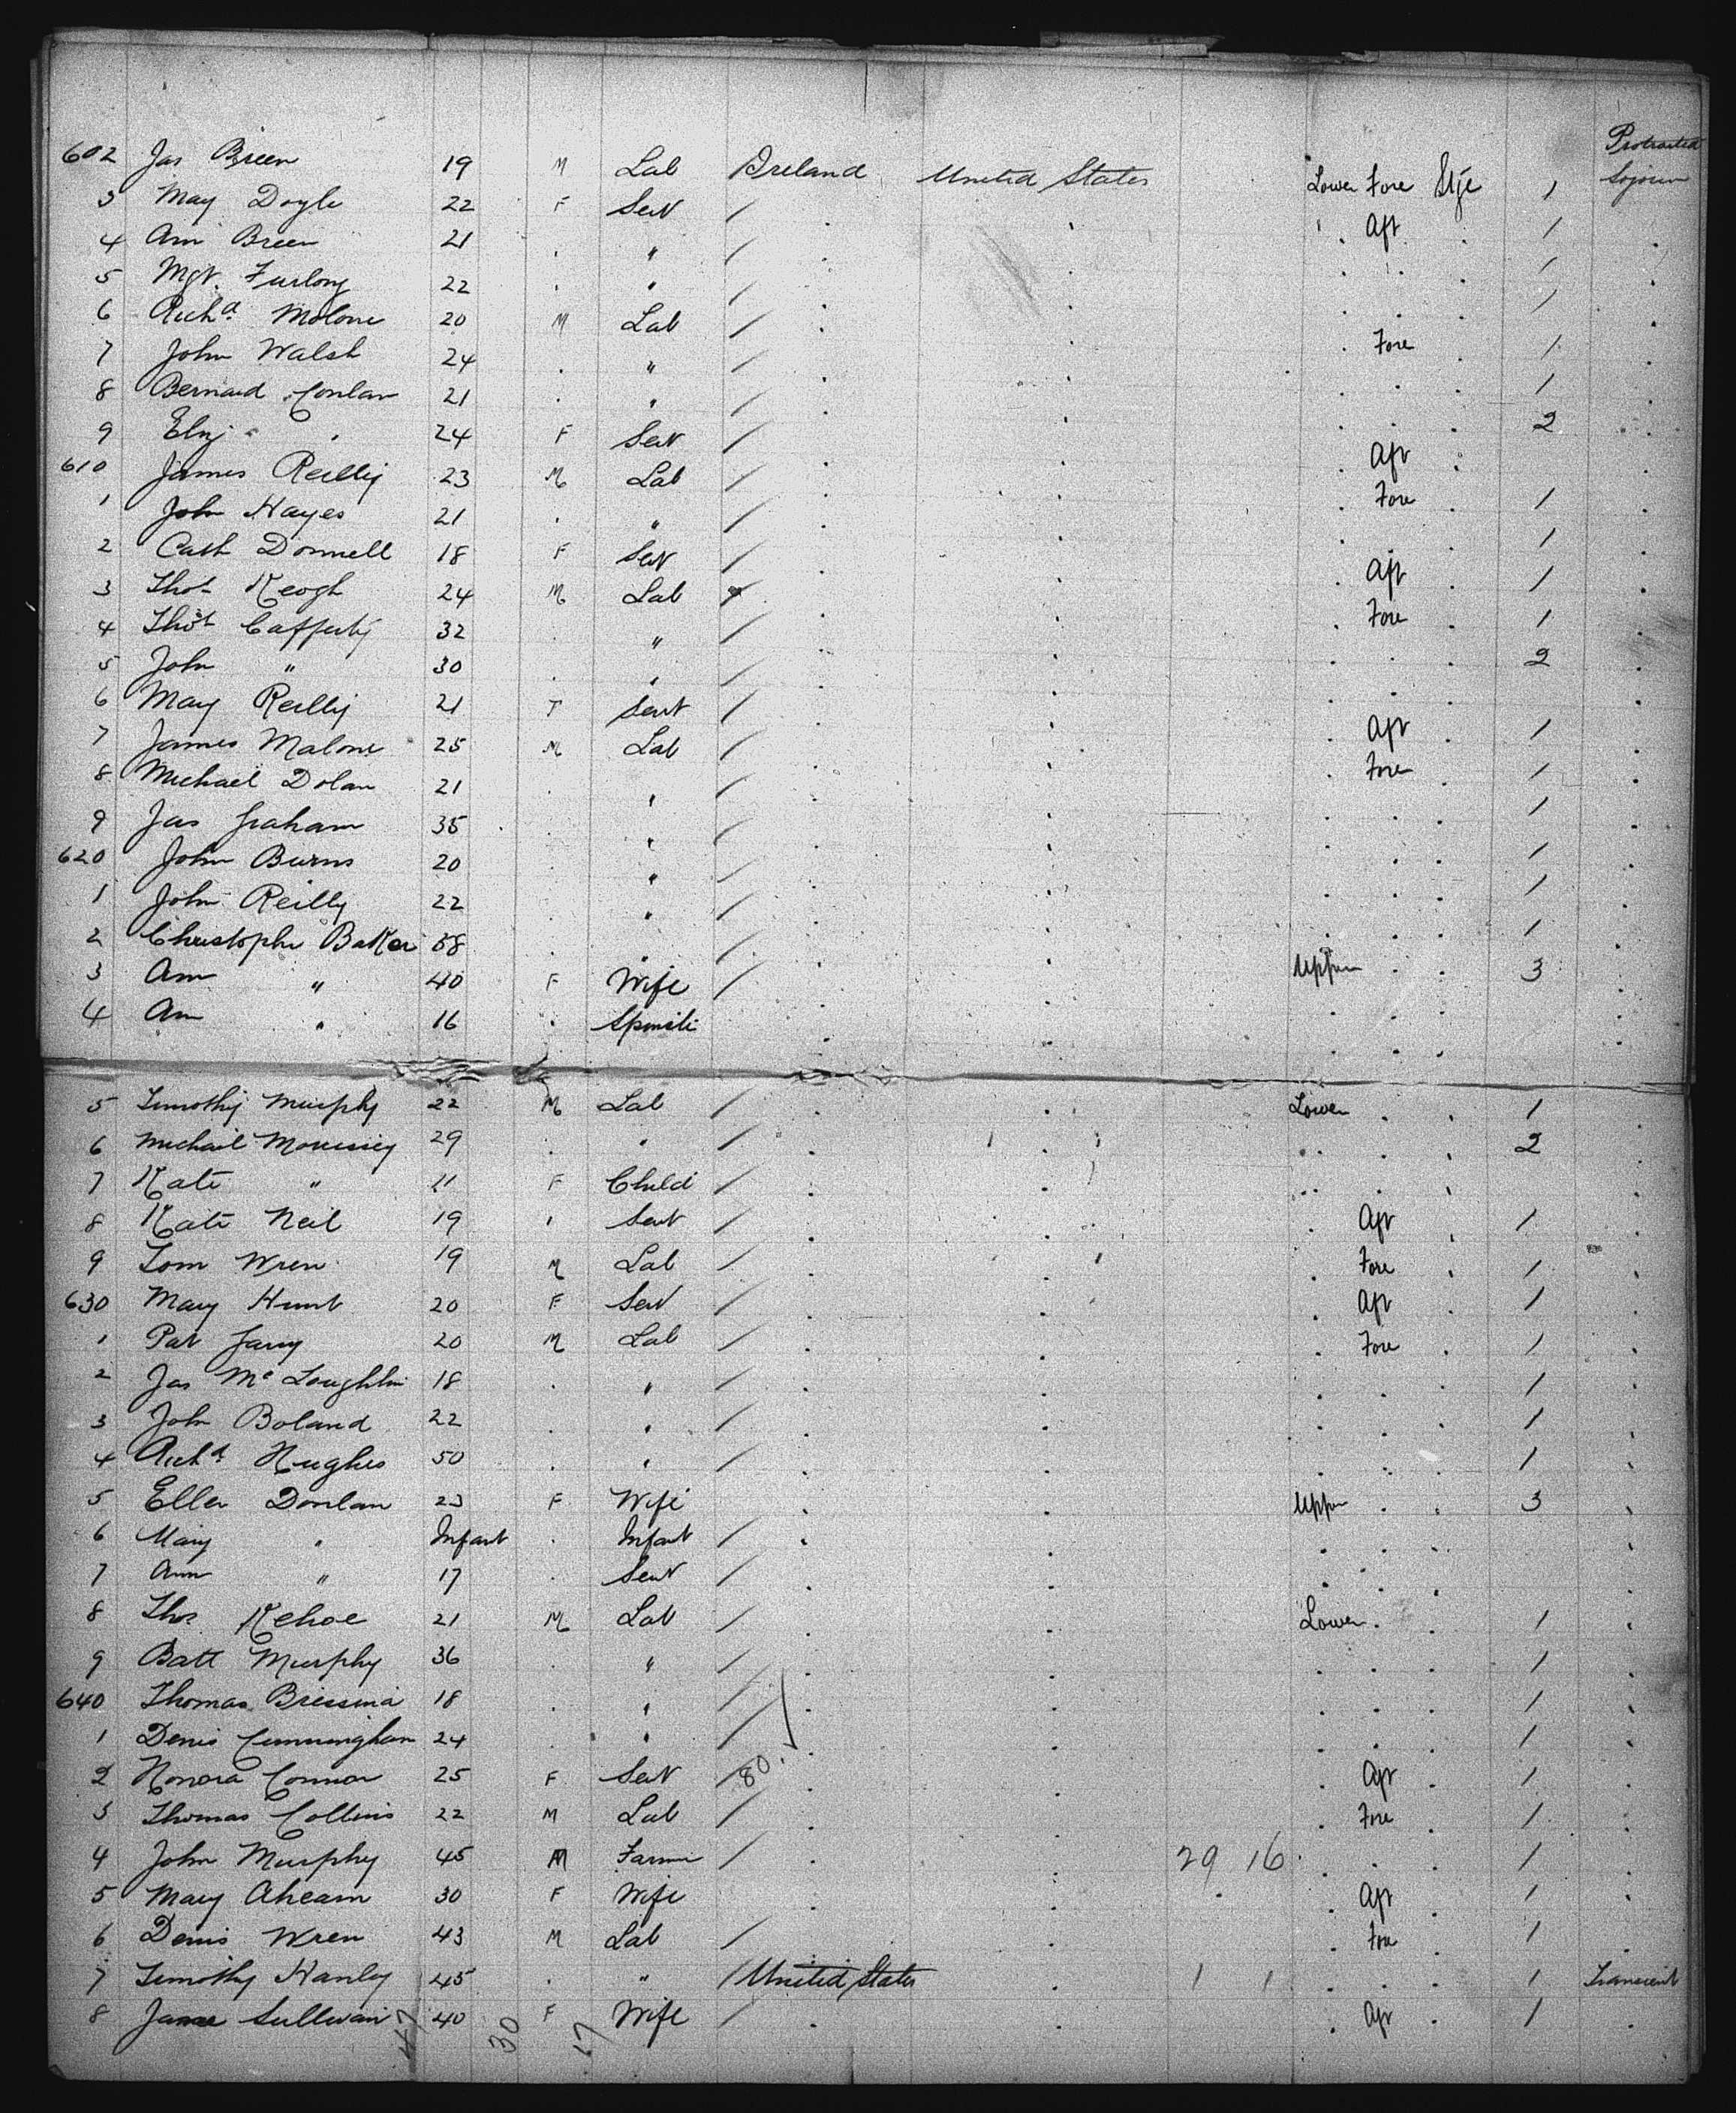 Protracted
602 Jas Breen 19 M Lab Ireland United States Lower Fore Stge 1 Sojourn
3 May Doyle 22 F Servt / . . " . Aft . 1 .
4 Ann Breen 21 . " / . . . . . 1 .
5 Mgt. Furlong 22 . " / . . . . . 1 .
6 Richd Molone 20 M Lab / . . . Fore . 1 .
7 John Walsh 24 . " / . . . . . 1 .
8 Bernard Conlan 21 . " / . . . . . 2 .
9 Eliz " 24 F Servt / . . . Aft . .
610 James Reilly 23 M Lab / . . . Fore . 1 .
1 John Hayes 21 . " / . . . . . 1 .
2 Cath Donnell 18 F Servt / . . . Aft . 1 .
3 Thos Keogh 24 M Lab / . . . Fore . 1 .
4 Thos Cafferty 32 . " / . . . . . 2 .
5 John " 30 . " / . . . . . .
6 Mary Reilly 21 F Servt / . . . Aft . 1 .
7 James Malone 25 M Lab / . . . Fore . 1 .
8 Michael Dolan 21 . " / . . . . . 1 .
9 Jas Graham 35 . " / . . . . . 1 .
620 John Burns 20 . " / . . . . . 1 .
1 John Reilly 22 . " / . . . . . 1 .
2 Christopher Baker 38 . " / . . Upper . . 3 .
3 Ann " 40 F Wife / . . . . . .
4 Ann " 16 . Spinster . . . . . .
5 Timothy Murphy 22 M Lab / . . Lower . . 1 .
6 Michael Morrissey 29 . " / . . . . . 2 .
7 Kate " 11 F Child / . . . . . .
8 Kate Neil 19 " Servt / . . . Aft . 1 .
9 Tom Wren 19 M Lab / . . . Fore . 1 .
630 Mary Hunt 20 F Servt / . . . Aft . 1 .
1 Pat Garry 20 M Lab / . . . Fore . 1 .
2 Jas Mc Loughlin 18 . " / . . . . . 1 .
3 John Boland 22 . " / . . . . . 1 .
4 Richd Hughes 50 . " / . . . . . 1 .
5 Ellen Donlan 23 F Wife . . Upper . . 3 .
6 Mary " Infant . Infant / . . . . . .
7 Ann " 17 . Servt / . . . . . .
8 Thos Kehoe 21 M Lab / . . Lower . . 1 .
9 Batt Murphy 36 . " / . . . . . 1 .
640 Thomas 18 . " / . . . . . 1 .
1 Denis Cunningham 24 . " / . . . . . 1 .
2 Honora Connor 25 F Servt / 80 . . . Aft . 1 .
3 Thomas Collins 22 M Lab / . . . Fore . 1 .
4 John Murphy 45 M Farmer / . . 29 16 . . . 1 .
5 Mary Ahearn 30 F Wife . . . Aft . 1 .
6 Denis Wren 43 M Lab / . . Fore . 1 .
7 Timothy Hanley 45 . " / United States . 1 1 . . . 1 Transient
8 Jane Sullivan 40 F Wife / . . . Aft . 1 .
47 30 17